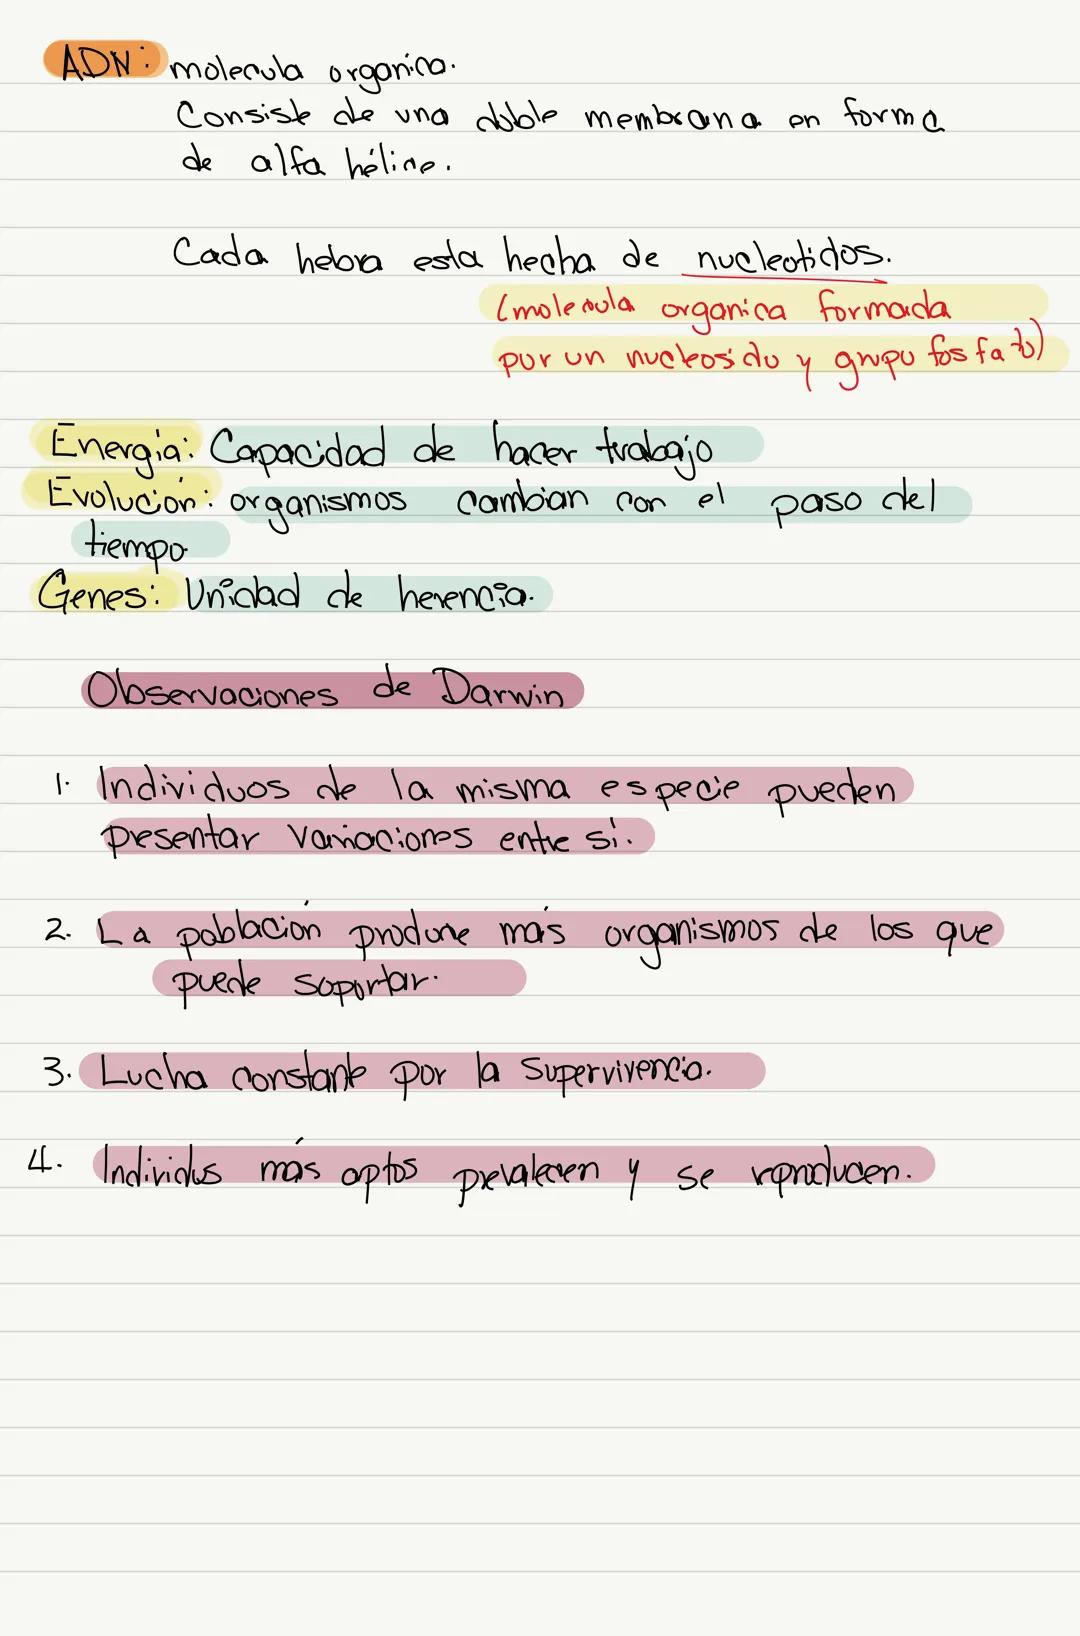 ADN: molecula organica.
Consiste de una doble membrana en forma
de alfa hélice.
Cada hebra esta hecha de nucleotidos.
(molecula organica formada
por un nucleosido y grupo fosfato)
Energía: Capacidad de hacer trabajo
Evolución: organismos cambian con el paso del
tiempo.
Genes: Unidad de herencia.
Observaciones de Darwin
1. Individuos de la misma especie pueden
presentar variaciones entre sí.
2. La población produce más organismos de los que
puede soportar.
3. Lucha constante por la supervivencia.
4. Individus más aptos prevalecen y se reproducen.